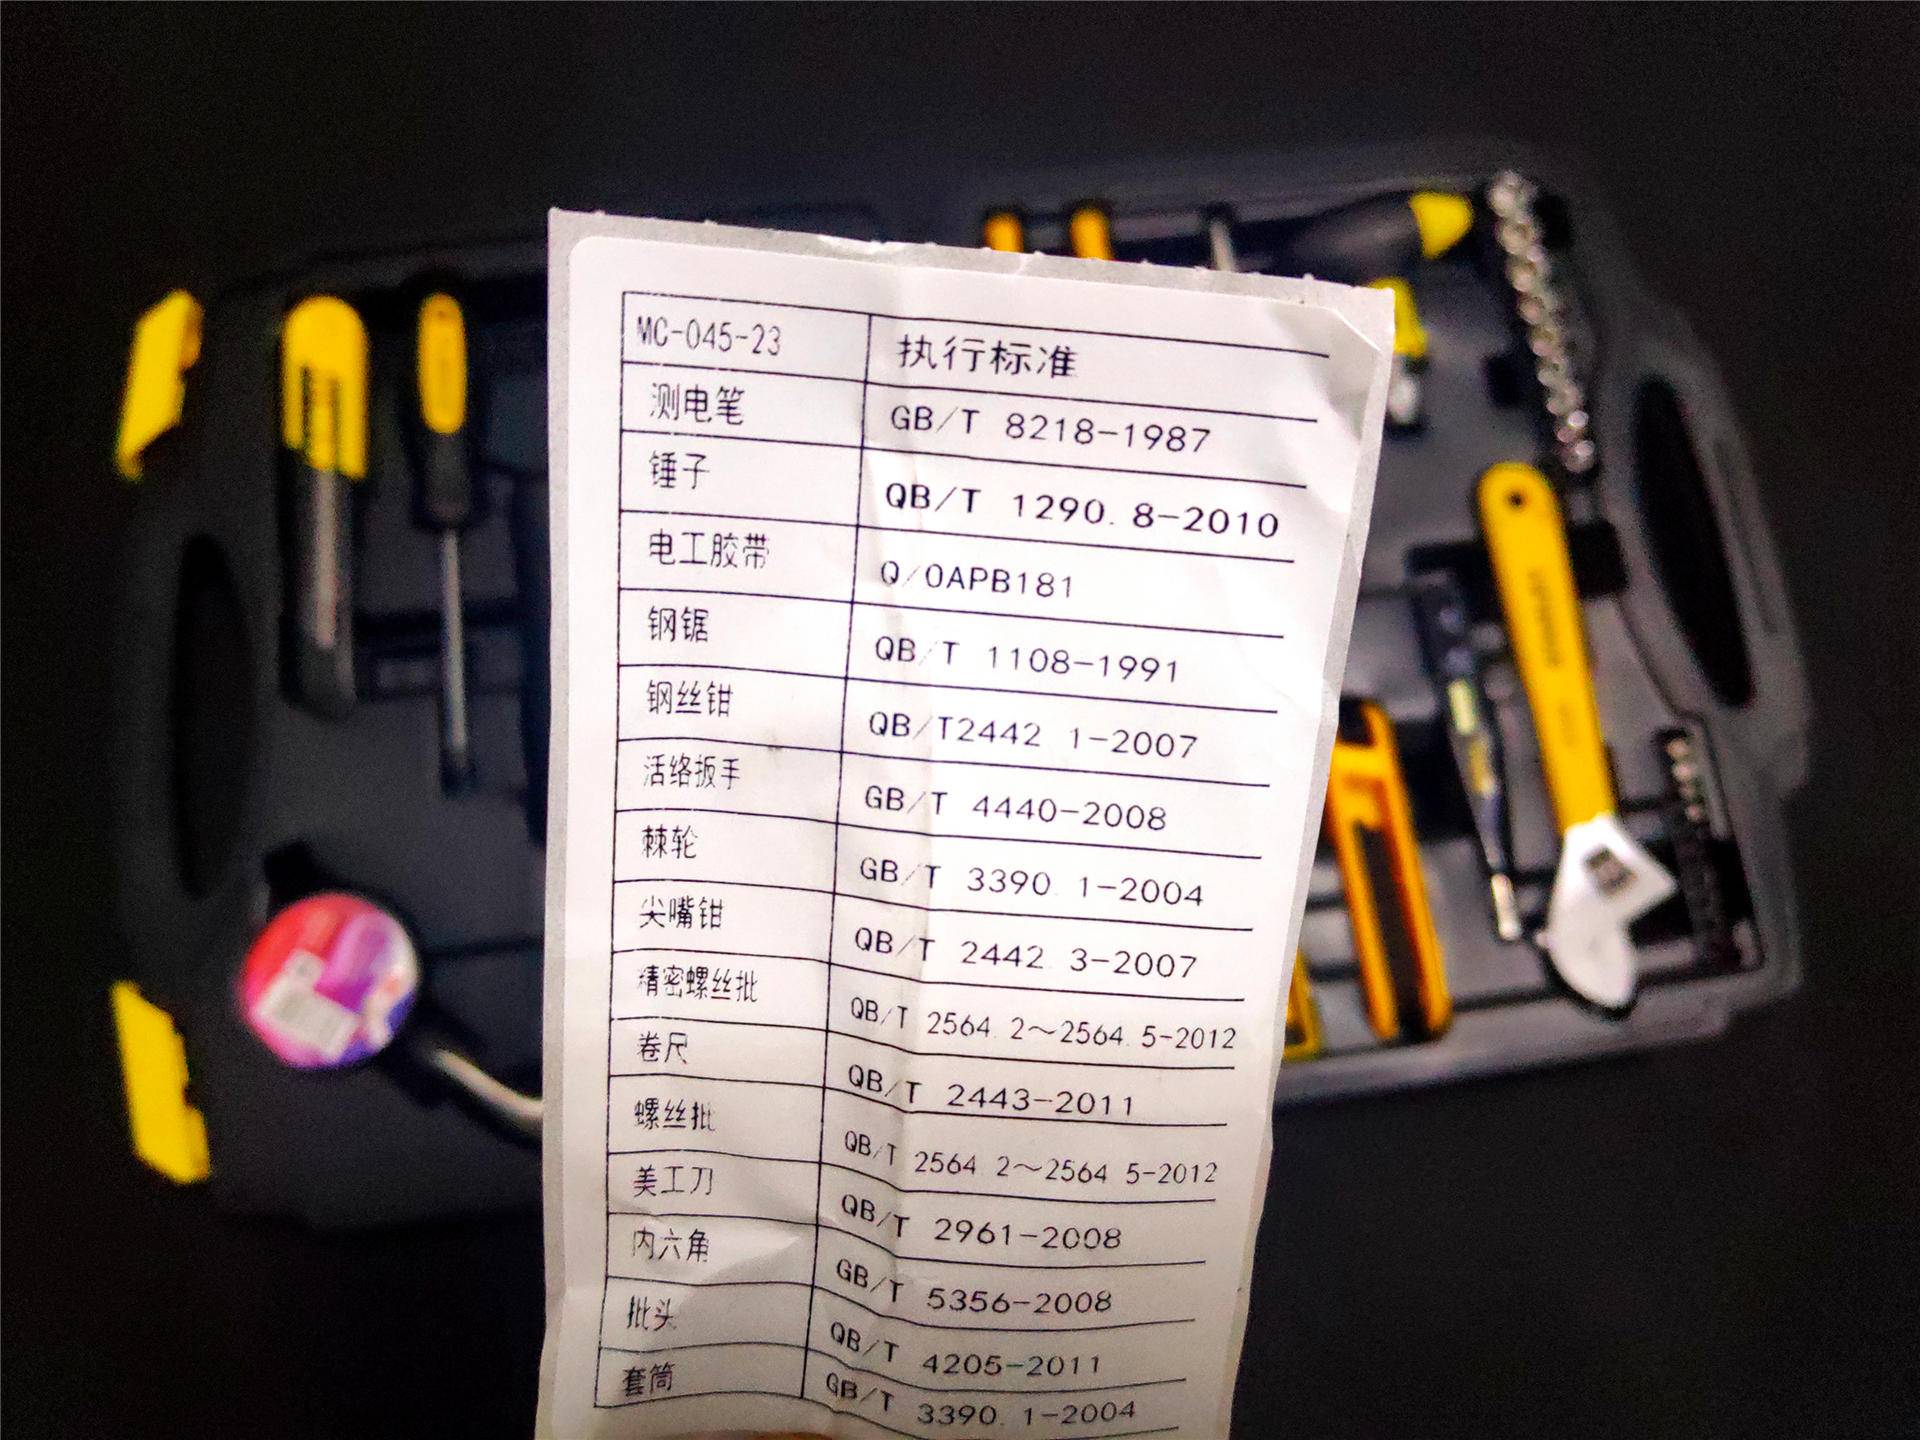 MC-045-23 执行标准
测电笔 GB/T 8218-1987
锤子 QB/T 1290.8-2010
电工胶带 Q/OAPB181
钢锯 QB/T 1108-1991
钢丝钳 QB/T2442 1-2007
活络扳手 GB/T 4440-2008
棘轮 GB/T 3390.1-2004
尖嘴钳 QB/T 2442.3-2007
精密螺丝批 QB/T 2564.2～2564.5-2012
卷尺 QB/T 2443-2011
螺丝批 QB/T 2564 2～2564 5-2012
美工刀 QB/T 2961-2008
内六角 GB/T 5356-2008
批头 QB/T 4205-2011
套筒 GB/T 3390.1-2004